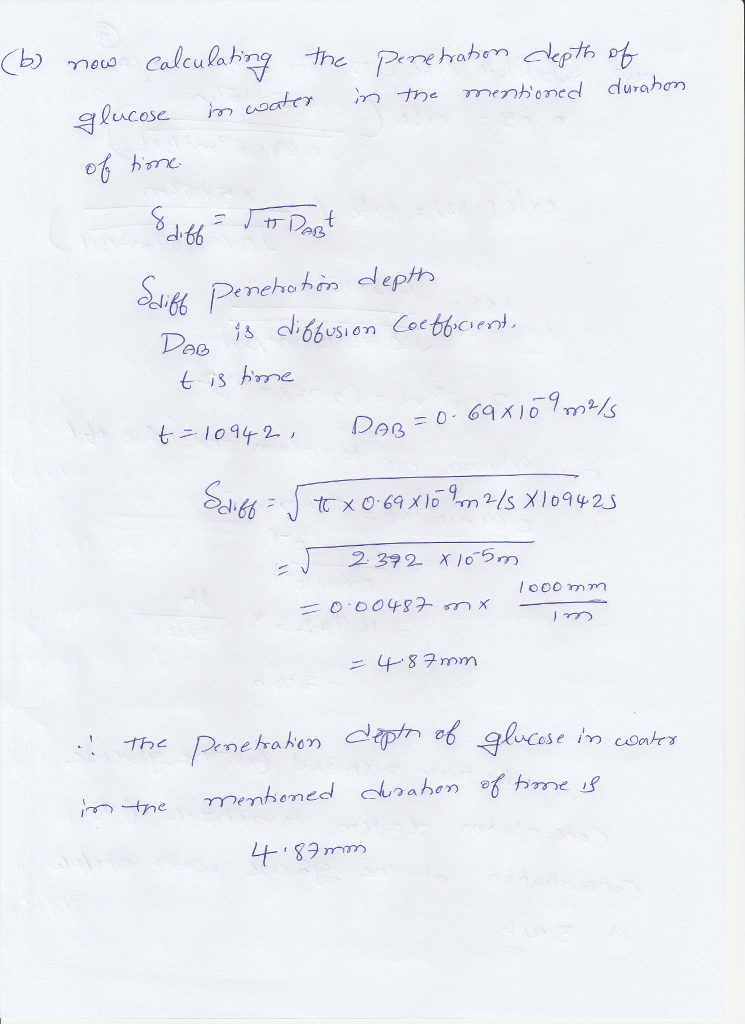 (b) now calculating the penetration depth of
glucose in water in the mentioned duration
of time.
δdiff = √π DAB t
δdiff penetration depth
DAB is diffusion coefficient.
t is time
t = 10942, DAB = 0.69 × 10⁻⁹ m²/s
δdiff = √π × 0.69 × 10⁻⁹ m²/s × 10942s
= √2.372 × 10⁻⁵ m
= 0.00487 m × 1000 mm / 1m
= 4.87mm
∴ the penetration depth of glucose in water
in the mentioned duration of time is
4.87mm